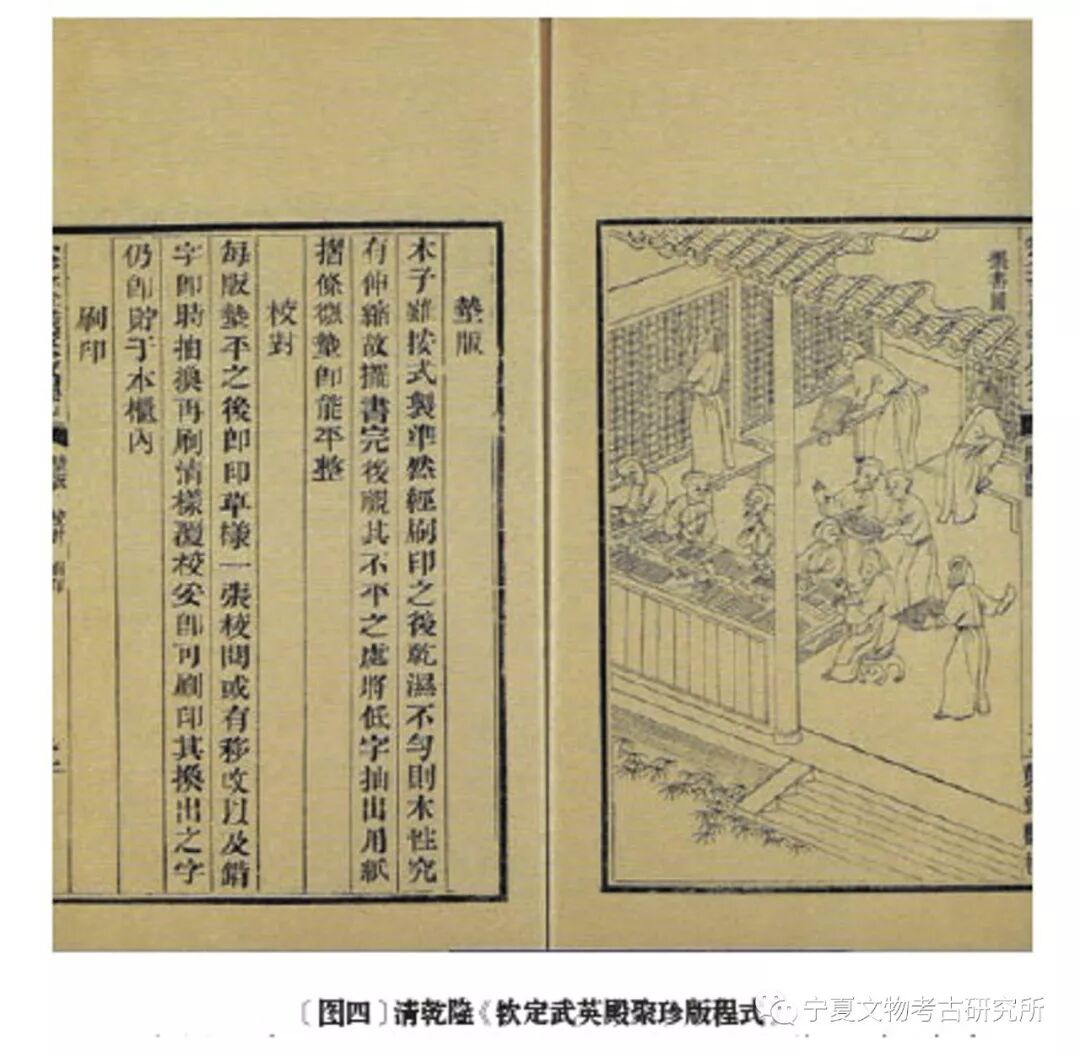 擺書圖
墊版
木子雖按式製準然經刷印之後乾濕不勻則木性究
有伸縮故擺書完後覘其不平之處將低字抽出用紙
摺條微墊即能平整
校對
每版墊平之後即印草樣一張校閱或有移改以及錯
字即時抽換再刷清樣覆校妥即可刷印其換出之字
仍即貯于木櫃內
刷印
〔图四〕清乾隆《钦定武英殿聚珍版程式》
宁夏文物考古研究所